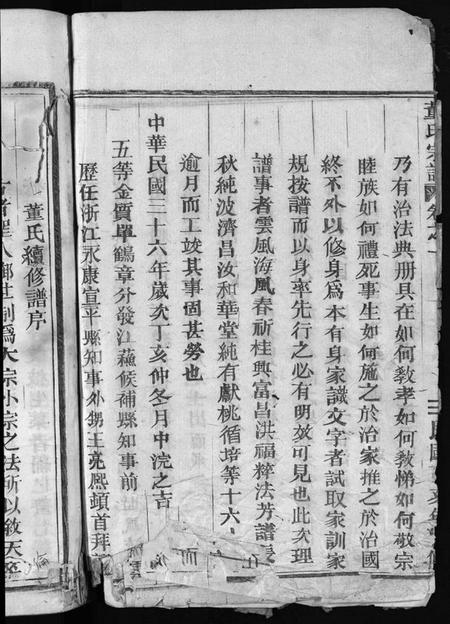 董氏宗譜
乃有治法典册具在如何敎孝如何敎悌如何敬宗
睦族如何禮死事生如何施之於治家推之於治國
終不外以修身爲本有身家識文字者試取家訓家
規按譜而以身率先行之必有明效可見也此次理
譜事者雲風海風春祈桂興富昌洪福粹法芳譜長
秋純波濟昌汝和華堂純有獻桃循培等十六
逾月而工竣其事固甚勞也
中華民國三十六年歲次丁亥仲冬月中浣之吉
五等金質單鶴章分發江蘇候補縣知事前
歷任浙江永康宣平縣知事外甥王亮熙頓首拜
董氏續修譜序
宗小宗之法所以敘天